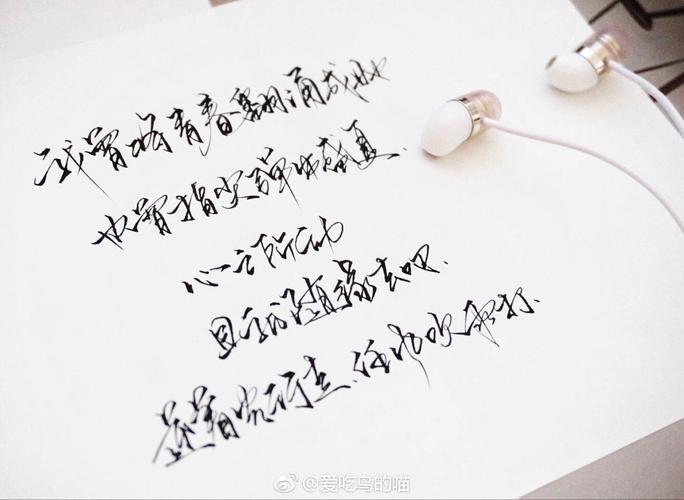 我曾将青春翻涌成她
也曾指尖弹出盛夏.
心之所动
且就随缘去吧.
逆着光行走.任风吹雨打.
@爱吃鸟的喵